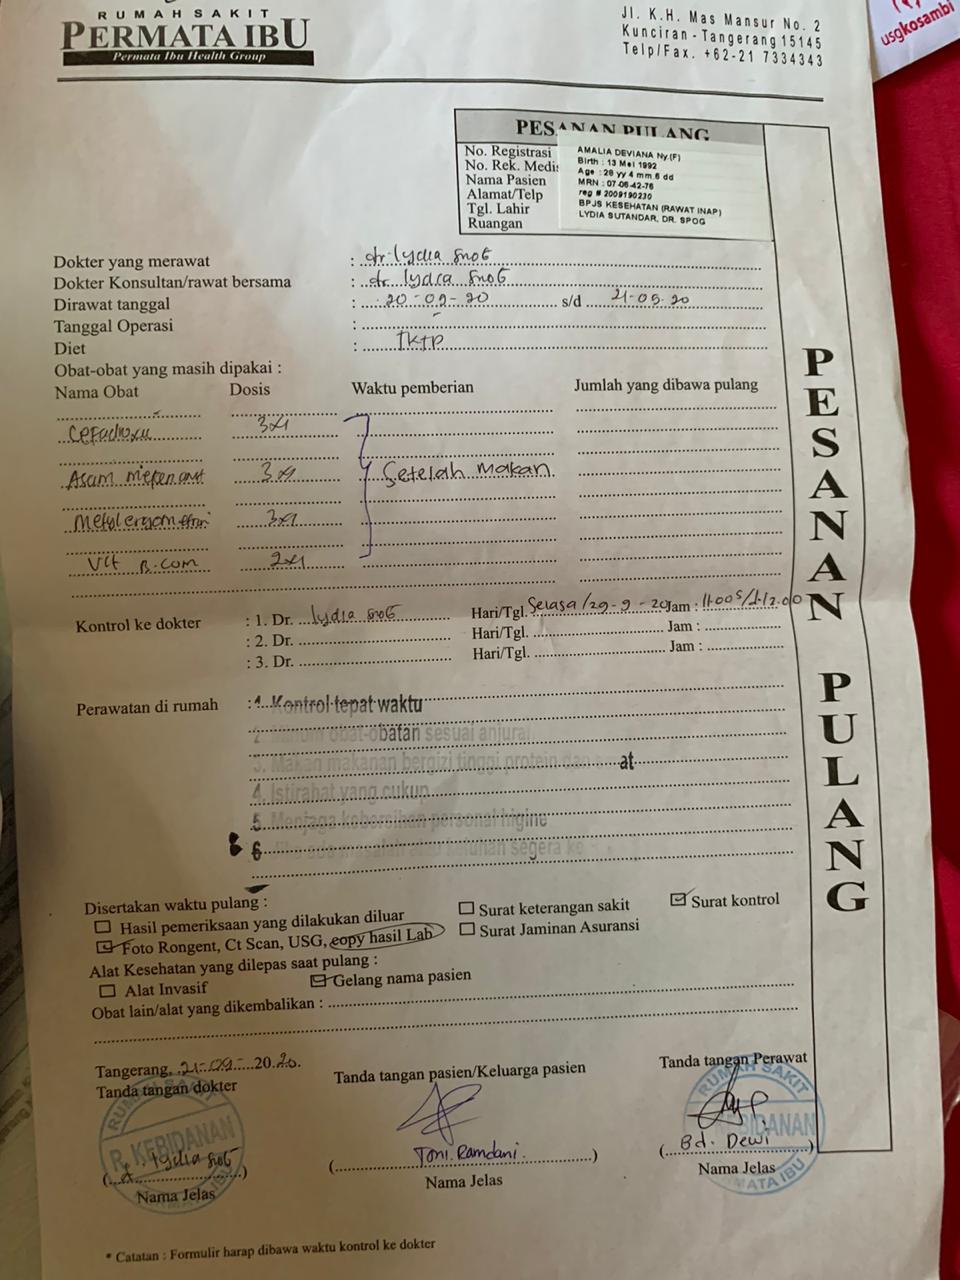 RUMAH SAKIT
PERMATA IBU
Permata Ibu Health Group
Jl. K.H. Mas Mansur No. 2
Kunciran - Tangerang 15145
Telp/Fax. +62-21 7334343
usgkosambi
PESANAN PULANG
No. Registrasi
No. Rek. Medis
Nama Pasien
Alamat/Telp
Tgl. Lahir
Ruangan
AMALIA DEVIANA Ny.(F)
Birth : 13 Mei 1992
Age : 28 yy 4 mm 6 dd
MRN : 07-06-42-76
reg # 2009190230
BPJS KESEHATAN (RAWAT INAP)
LYDIA SUTANDAR, DR. SPOG
Dokter yang merawat : dr. lydia SpOG
Dokter Konsultan/rawat bersama : dr. lydia SpOG
Dirawat tanggal : 20-09-20 s/d 21-09-20
Tanggal Operasi : -
Diet : TKTP
Obat-obat yang masih dipakai :
Nama Obat Dosis Waktu pemberian Jumlah yang dibawa pulang
3x1
Asam mefenamat 3x1 Setelah makan.
3x1
Vit B.com 2x1
Kontrol ke dokter : 1. Dr. lydia SpOG Hari/Tgl. Selasa/29-9-20 Jam :
: 2. Dr. Hari/Tgl. Jam :
: 3. Dr. Hari/Tgl. Jam :
Perawatan di rumah : 1. Kontrol tepat waktu
2. Minum obat-obatan sesuai anjuran
3. Makan makanan bergizi tinggi protein dan at
4. Istirahat yang cukup
5. Menjaga kebersihan personal higine
6. Jika ada masalah atau keluhan segera ke
PESANAN PULANG
Disertakan waktu pulang :
Hasil pemeriksaan yang dilakukan diluar Surat keterangan sakit Surat kontrol
Foto Rongent, Ct Scan, USG, copy hasil Lab Surat Jaminan Asuransi
Alat Kesehatan yang dilepas saat pulang :
Alat Invasif Gelang nama pasien
Obat lain/alat yang dikembalikan :
Tangerang, 21-09-2020.
Tanda tangan dokter Tanda tangan pasien/Keluarga pasien Tanda tangan Perawat
RUMAH SAKIT
R. KEBIDANAN
RUMAH SAKIT
KEBIDANAN
PERMATA IBU
(dr. lydia SpOG) (Toni Ramdani) (Bd. Dewi)
Nama Jelas Nama Jelas Nama Jelas
* Catatan : Formulir harap dibawa waktu kontrol ke dokter